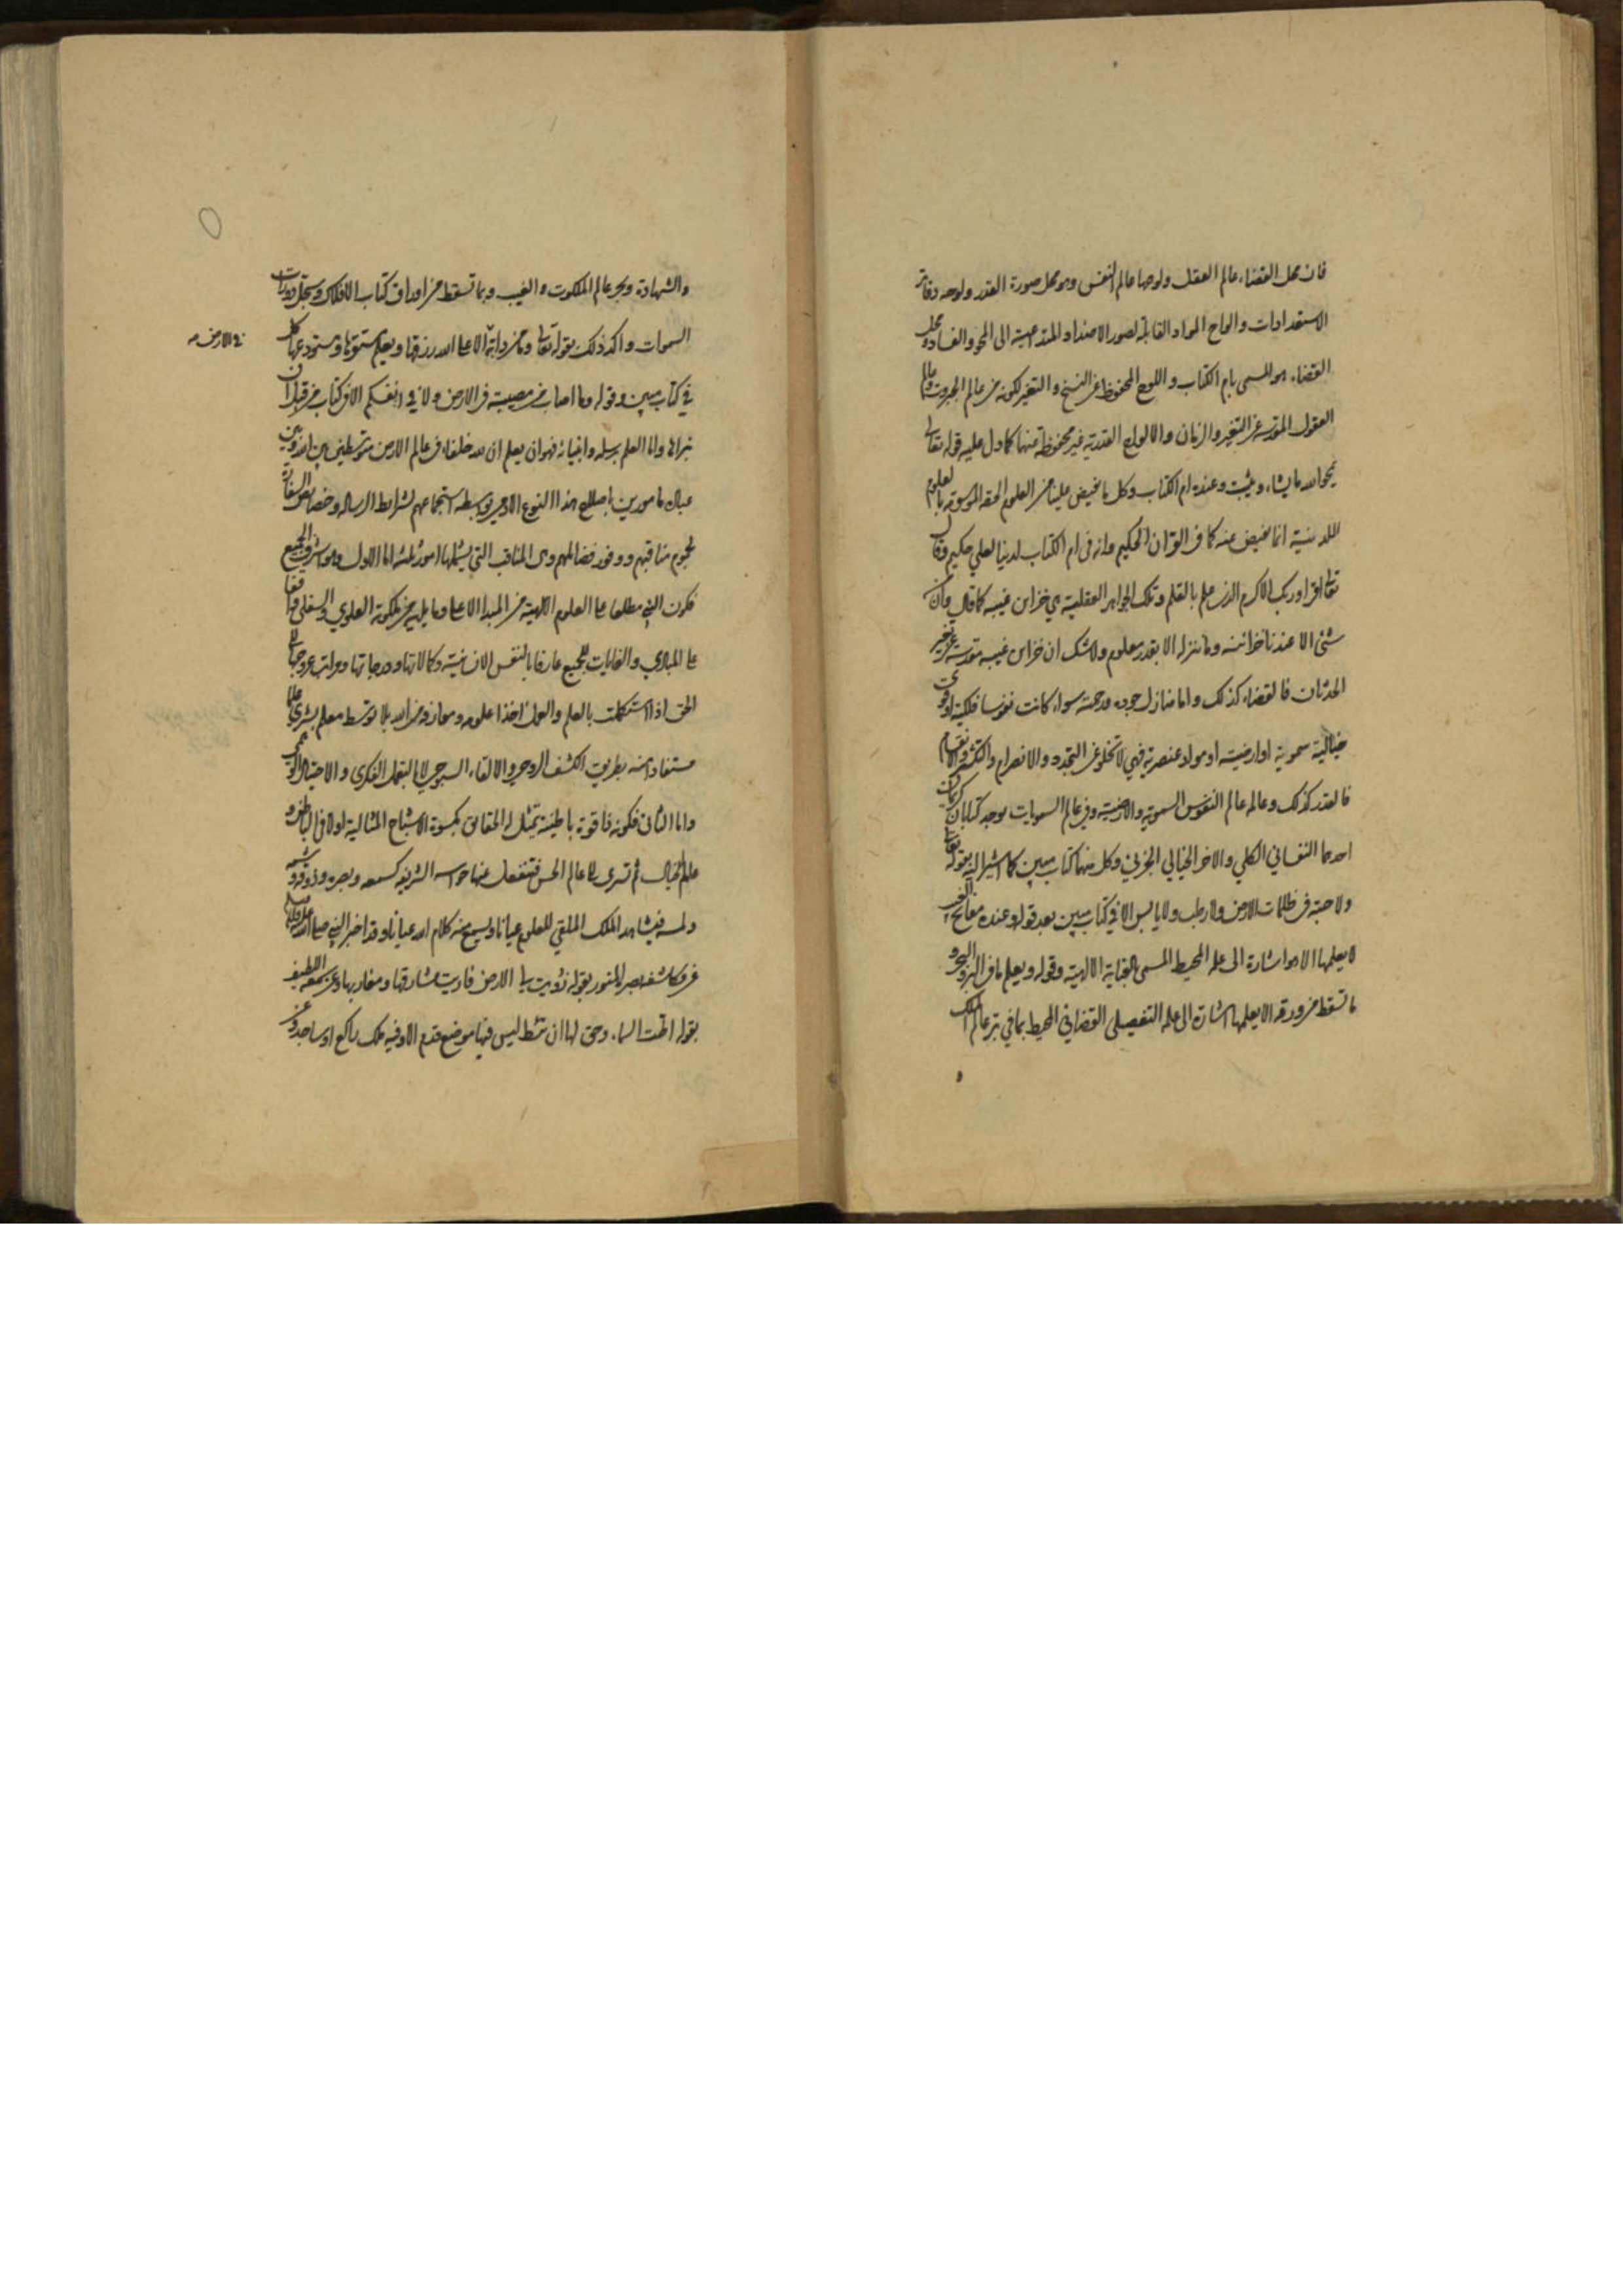 فان محل القضاء عالم العقل ولوحها عالم النفس وهو محل صورة القدر ولوحه دفاتر
الاستعدادات والواح المواد القابلة لصور الاضداد المتداعية الى المحو والفساد ومحل
القضاء هو المسمى بام الكتاب و اللوح المحفوظ عن النسخ و التغير لكونه من عالم الجبروت وعالم
العقول المقدسة عن التغير والزمان والالواح القدرية غير محفوظة منها كما دل عليه قوله تعالى
يمحو الله ما يشاء ويثبت وعنده ام الكتاب وكل ما يفيض علينا من العلوم الحقه الموسومة بالعلوم
اللدنية انما يفيض عنه كما في القران الحكيم وانه في ام الكتاب لدينا لعلي حكيم وقال
تعالى اقرا وربك الاكرم الذي علم بالقلم وتلك الجواهر العقلية هي خزاين غيبه كما قال وان من
شئ الا عندنا خزائنه وما ننزله الا بقدر معلوم ولا شك ان خزاين غيبه مقدسة عن تغير
الحدثان فالقضاء كذلك واما منازل جوده ورحمته سواء كانت نفوسا فلكية او قوى
خيالية سموية او ارضية او مواد عنصرية فهي لا تخلو عن التجدد والانصرام والتكثر والانقسام
فالقدر كذلك وعالمه عالم النفوس السموية والارضية وفي عالم السمويات يوجد كتابان كريمان
احدهما النفساني الكلي والاخر الخيالي الجزئي وكل منهما كتاب مبين كما اشير اليه بقوله تعالى
ولا حبة في ظلمات الارض ولا رطب ولا يابس الا في كتاب مبين بعد قوله وعنده مفاتح الغيب
لا يعلمها الا هو اشارة الى علمه المحيط المسمى بالعناية الالهية وقوله ويعلم ما في البر والبحر و
ما تسقط من ورقة الا يعلمها اشارة الى علمه التفصيلي القضائي المحيط بما في بر عالم الملك
والشهادة وبحر عالم الملكوت والغيب وبما تسقط من اوراق كتاب الافلاك وسجل دورات
السموات واكد ذلك بقوله تعالى وما من دابة الا على الله رزقها ويعلم مستقرها ومستودعها كل
في الارض
في كتاب مبين وقوله وما اصاب من مصيبة في الارض ولا في انفسكم الا في كتاب من قبل ان
نبراها واما العلم برسله وانبيائه فهو ان يعلم ان لله خلفاء في عالم الارض متوسطين بين الله وبين
عباده مامورين باصلاح هذا النوع الادمي بواسطة استجماعهم لشرايط الرسالة وخصايص السفارة
لجموم مناقبهم ووفور فضائلهم وهي المناقب التي يشملها امور ثلثة اما الاول وهو اشرف الجميع
فكون النبي مطلعا على العلوم الالهية من المبدا الاعلى وما يليه من ملكوته العلوي والسفلي واقفا
على المبادي والغايات للجميع عارفا بالنفس الانسانية وكمالاتها ودرجاتها ومراتب عروجها الى
الحق اذا استكملت بالعلم والعمل اخذا علومه ومعارفه من الله بلا توسط معلم بشري علما
مستفادا منه بطريق الكشف الروحي والالقاء السبوحي لا بالتعمل الفكري والاحتيال
واما الثاني فكونه ذا قوة باطنية تمثل له الحقائق بكسوة الاشباح المثالية اولا في الباطن و
عالم الخيال ثم تسري الى عالم الحس فتنفعل عنها حواسه الشريفة كسمعه وبصره وذوقه وشمه
ولمسه فيشاهد الملك الملقي للعلوم عيانا ويسمع منه كلام الله عيانا وقد اخبر النبي صلى الله عليه واله
عن مكاشفة بصره المنور بقوله زويت لي الارض فاريت مشارقها ومغاربها وعن سمعه اللطيف
بقوله اطت السماء وحق لها ان تئط ليس فيها موضع قدم الا وفيه ملك راكع او ساجد وعن